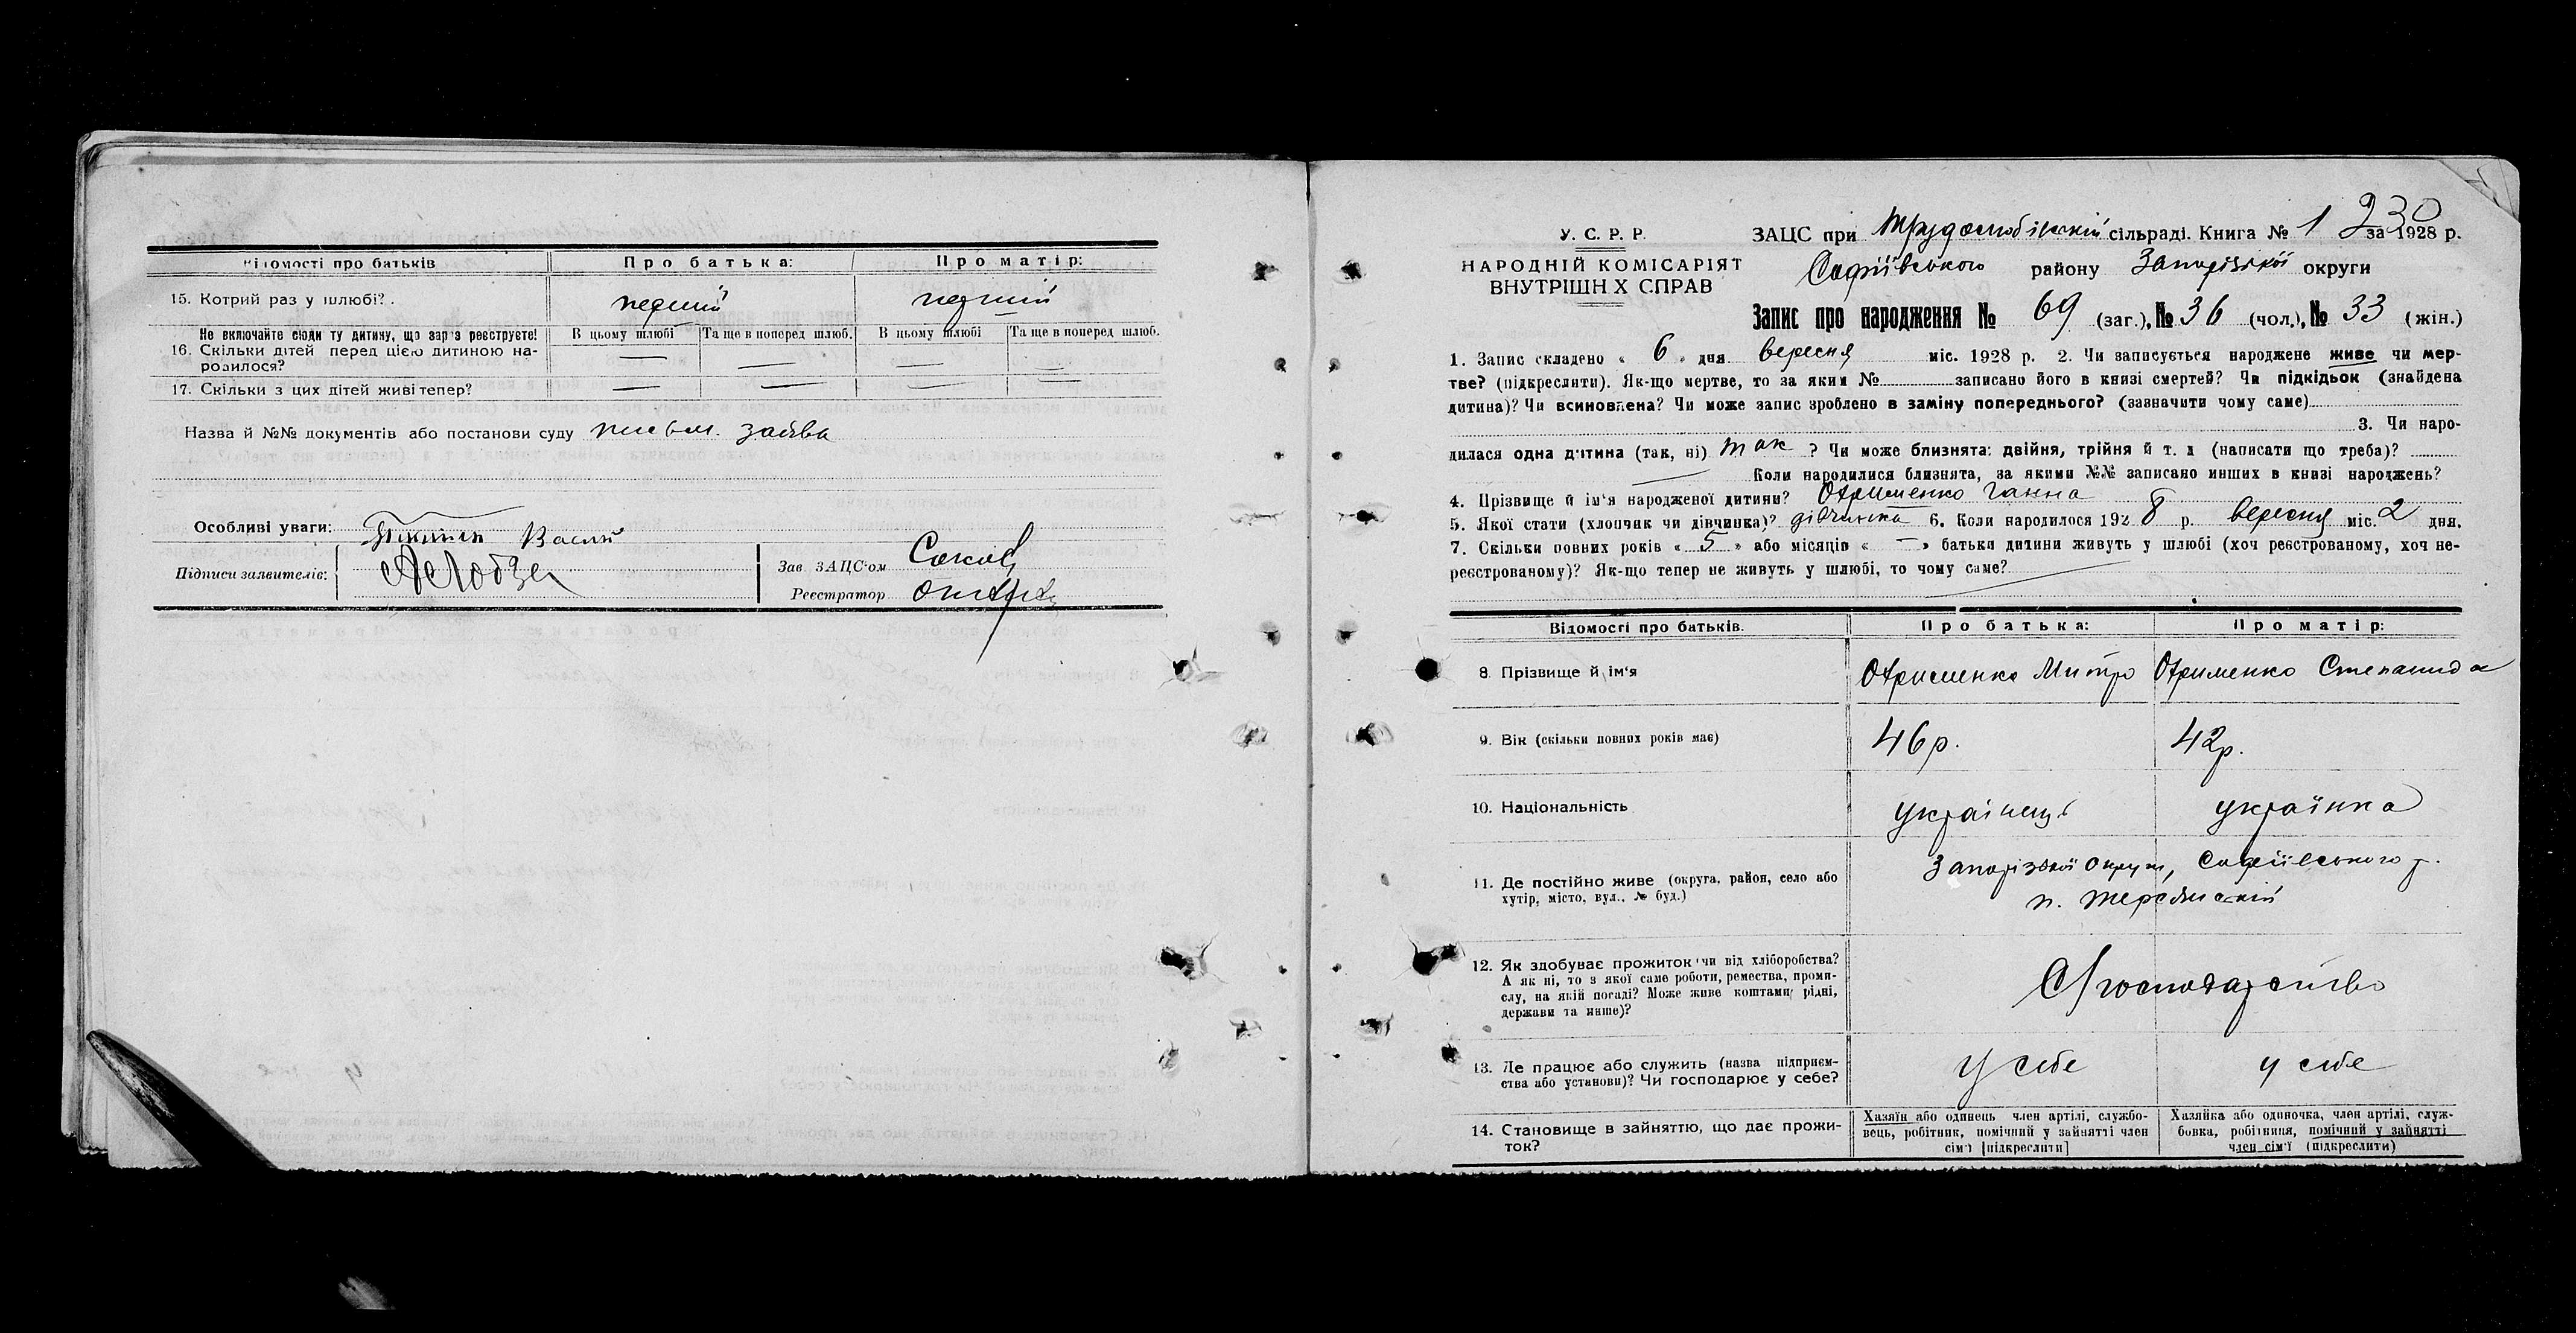 Відомості про батьків
Про батька:
Про матір:
15. Котрий раз у шлюбі?
перший
перший
Не включайте сюди ту дитину, що зараз реєструєте!
16. Скільки дітей перед цією дитиною народилося?
В цьому шлюбі
Та ще в поперед шлюб.
В цьому шлюбі
Та ще в поперед шлюб.
17. Скільки з цих дітей живі тепер?
Назва й №№ документів або постанови суду письм. заява
Особливі уваги:
Василь
Підписи заявителів:
Зав ЗАЦС-ом
Реєстратор
230
У. С. Р. Р.
НАРОДНІЙ КОМІСАРІЯТ
ВНУТРІШН Х СПРАВ
ЗАЦС при сільраді. Книга № 1 за 1928 р.
Софіївського району Запорізької округи
Запис про народження № 69 (заг.), № 36 (чол.), № 33 (жін.)
1. Запис складено « 6 » дня вересня міс. 1928 р. 2. Чи записується народжене живе чи мер-
тве? (підкреслити). Як-що мертве, то за яким № записано його в книзі смертей? Чи підкідьок (знайдена
дитина)? Чи всиновлена? Чи може запис зроблено в заміну попереднього? (зазначити чому саме)
3. Чи наро-
дилася одна дитина (так, ні) так ? Чи може близнята: двійня, трійня й т. д (написати що треба)?
Коли народилися близнята, за якими №№ записано инших в книзі народжень?
4. Прізвище й ім'я народженої дитини? Охрименко Ганна
5. Якої стати (хлопчик чи дівчинка)? дівчинка 6. Коли народилося 1928 р. вересня міс. 2 дня.
7. Скільки повних років « 5 » або місяців « — » батьки дитини живуть у шлюбі (хоч реєстрованому, хоч не-
реєстрованому)? Як-що тепер не живуть у шлюбі, то чому саме?
Відомості про батьків.
Про батька:
Про матір:
8. Прізвище й ім'я
Охрименко Митро
Охрименко Степанида
9. Вік (скільки повних років має)
46 р.
42 р.
10. Національність
українець
українка
11. Де постійно живе (округа, район, село або
хутір, місто, вул., № буд.)
Запорізької округи, Софіївського р.
12. Як здобуває прожиток чи від хліборобства?
А як ні, то з якої саме роботи, ремества, проми-
слу, на якій посаді? Може живе коштами рідні,
держави та инше)?
С/господарство
13. Де працює або служить (назва підприєм-
ства або установи)? Чи господарює у себе?
у себе
у себе
14. Становище в зайняттю, що дає прожи-
ток?
Хазяїн або одинець член артілі, службо-
вець, робітник, помічний у зайнятті член
сім'ї [підкреслити]
Хазяйка або одиночка, член артілі, служ-
бовка, робітниця, помічний у зайнятті
член сім'ї (підкреслити)